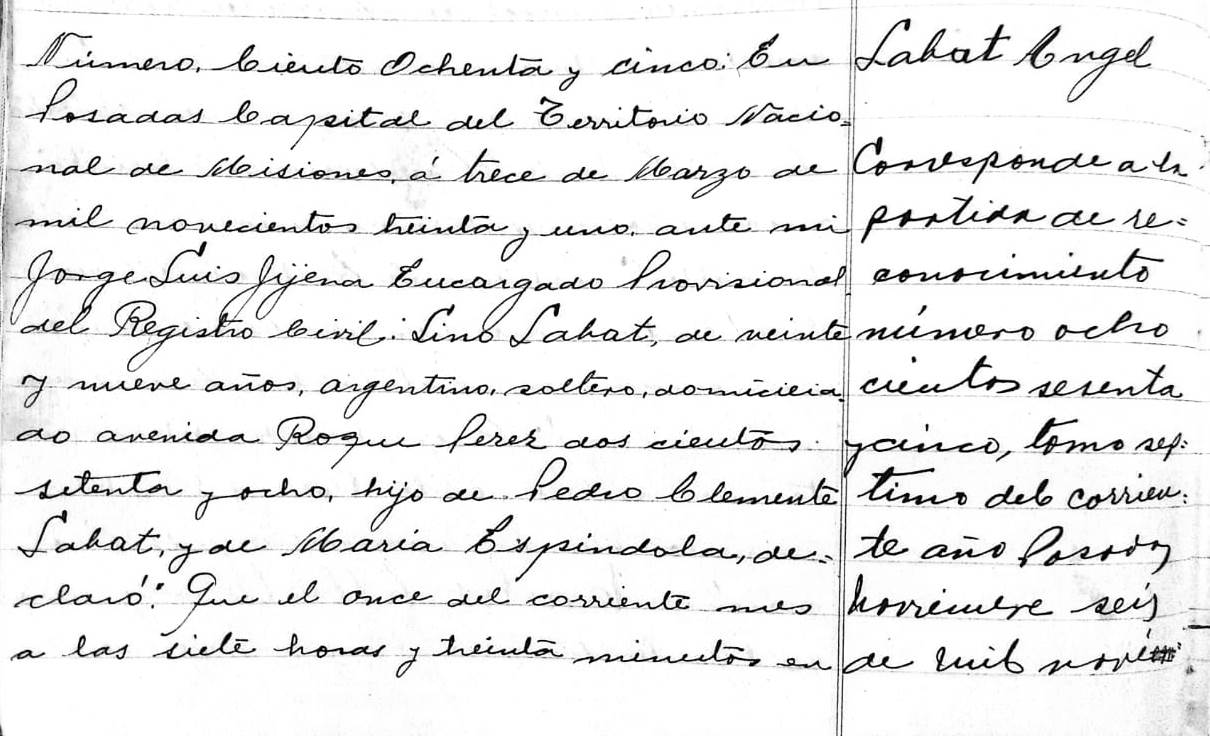 Número. Ciento Ochenta y cinco: En
Posadas Capital del Territorio Nacio=
nal de Misiones, á trece de Marzo de
mil novecientos treinta y uno. ante mi
Jorge Luis Jijena Encargado Provisional
del Registro Civil: Lino Labat, de veinte
y nueve años, argentino, soltero, domicicia=
do avenida Roque Perez dos cientos
setenta y ocho, hijo de Pedro Clemente
Labat, y de Maria Espindola, de=
claró: Que el once del corriente mes
a las siete horas y treinta minutos en
Labat Angel
Corresponde a la
partida de re=
conocimiento
número ocho
cientos sesenta
y cinco, tomo sép=
timo del corrien=
te año Posadas
noviembre seis
de mil novecien